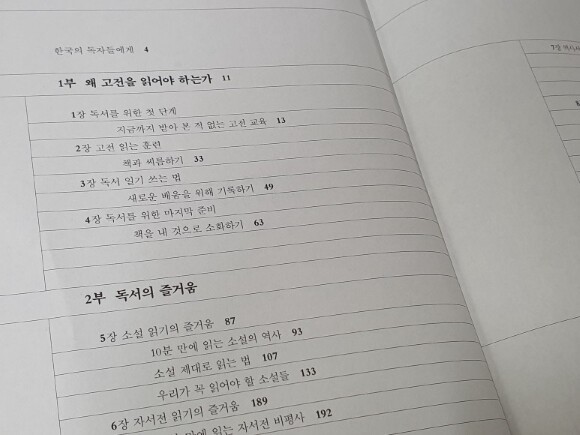 한국의 독자들에게 4
1부 왜 고전을 읽어야 하는가 11
1장 독서를 위한 첫 단계
지금까지 받아 본 적 없는 고전 교육 13
2장 고전 읽는 훈련
책과 씨름하기 33
3장 독서 일기 쓰는 법
새로운 배움을 위해 기록하기 49
4장 독서를 위한 마지막 준비
책을 내 것으로 소화하기 63
2부 독서의 즐거움
5장 소설 읽기의 즐거움 87
10분 만에 읽는 소설의 역사 93
소설 제대로 읽는 법 107
우리가 꼭 읽어야 할 소설들 133
6장 자서전 읽기의 즐거움 189
만에 읽는 자서전 비평사 192
7장